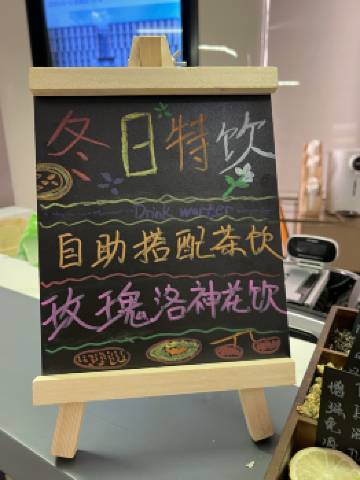 冬日特饮
Drink warter
自助搭配茶饮
玫瑰洛神花饮